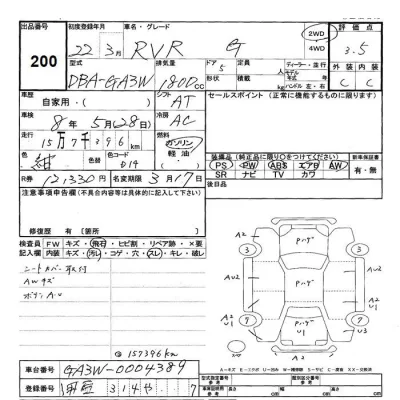 出品番号 初度登録年月 車名・グレード 2WD 4WD 評価点
200 22年 3月 RVR G 3.5
型式 排気量 ドア 定員 ディーラー・並行 外装 内装
DBA-GA3W 1800cc 5 形状 人 モデル年式 kg ハンドル 左・右 C C
車歴 自家用・( ) シフト AT セールスポイント (正常に機能するものに限ります)
車検 8年 5月(28日) 冷房 AC
走行 15万7千396km 燃料 ガソリン 軽油
色 紺 色替 色コード D14
装備品 (純正品に限り○をつけてください) 新車保証書
PS PW ABS エアB AW 有・無
SR ナビ TV カワ
R券 12,330円 名変期限 3月17日 後日品
注意事項申告欄 (不具合内容等は具体的に記入して下さい)
修復歴 有 [箇所
検査員記入欄 FW キズ・飛石・ヒビ割・リペア跡・×要
内装 キズ・汚レ・コゲ・穴・スレ・キレ・破レ
シートカバー取付
AWキズ
ボデーA・U
@157396km
A2 Pハゲ
3 3
AU2 Pハゲ AU2
7 7
A2 U1 Pハゲ A2 U1
A2
車台番号 GA3W-0004389
登録番号 314 7
A-キズ E-エクボ U-凹み W-補修跡 S-サビ C-腐食 XX-交換済